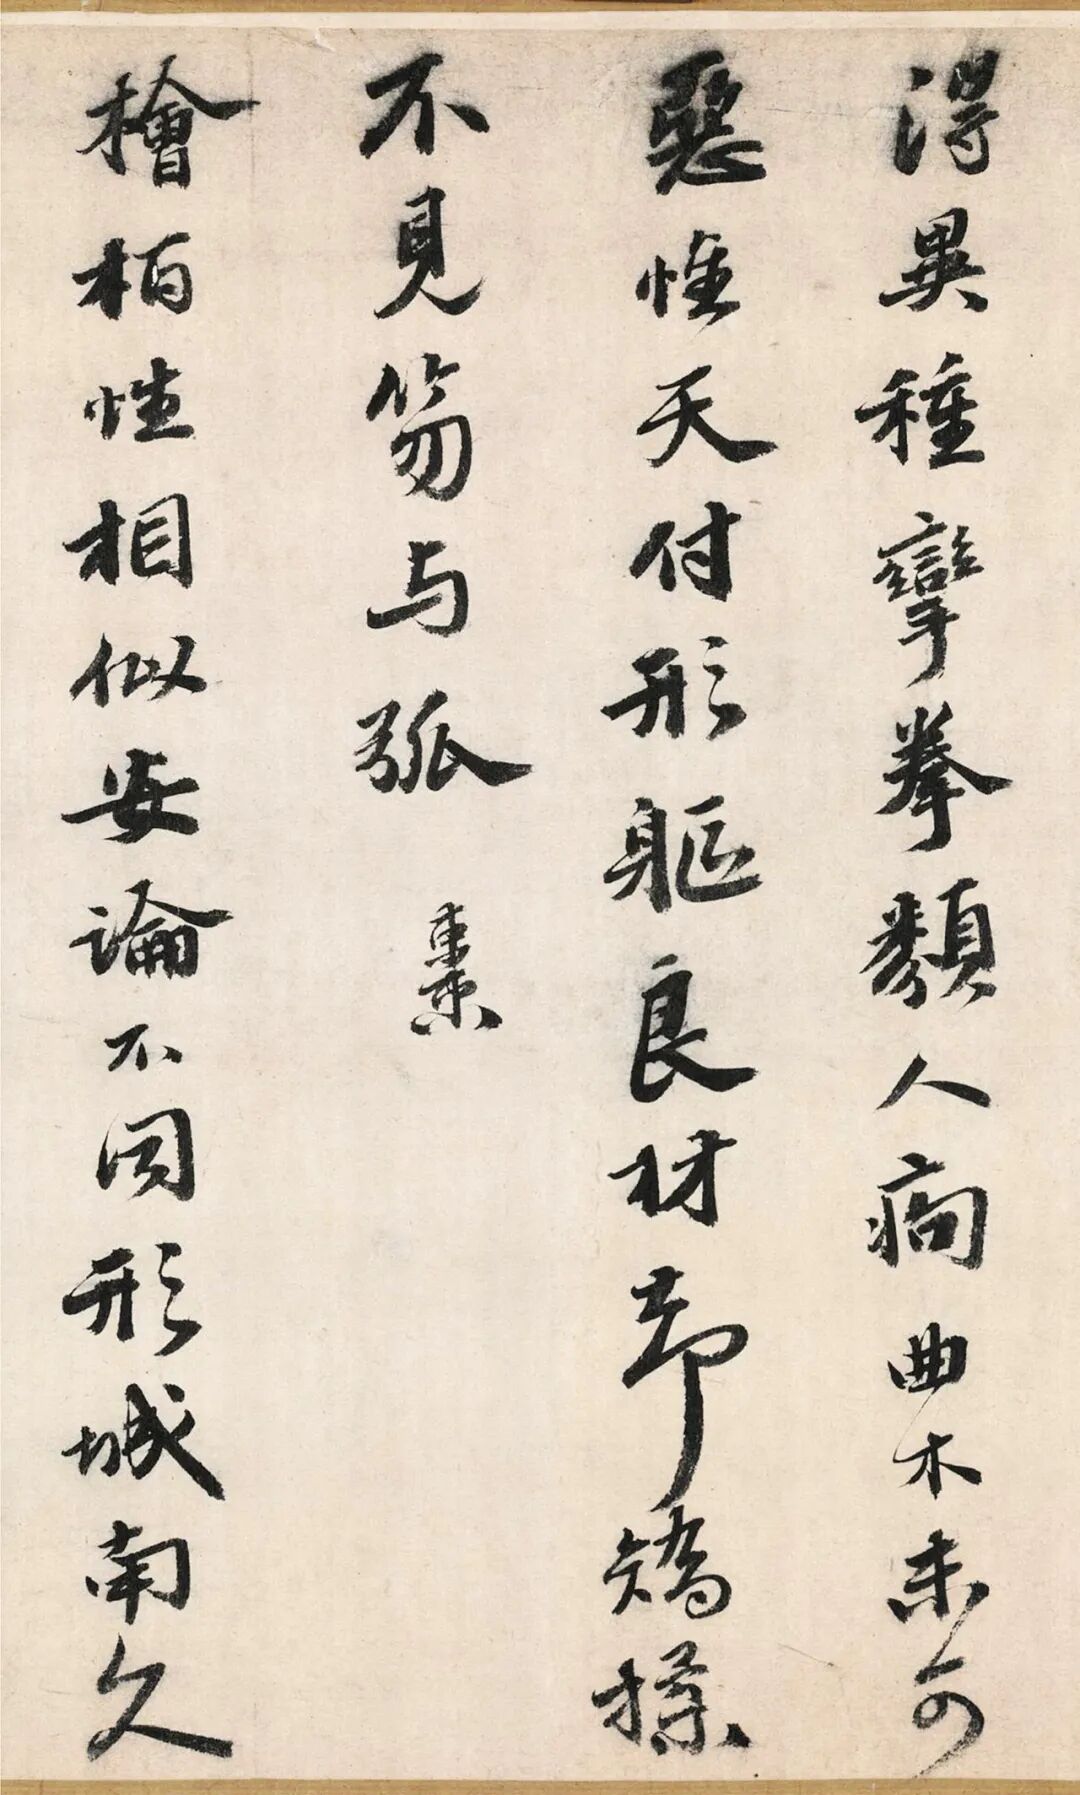 得異種攣拳類人痀曲木未可
惡惟天付形軀良材却矯揉
不見笏与弧 棗
檜栢性相似安論不同形城南久